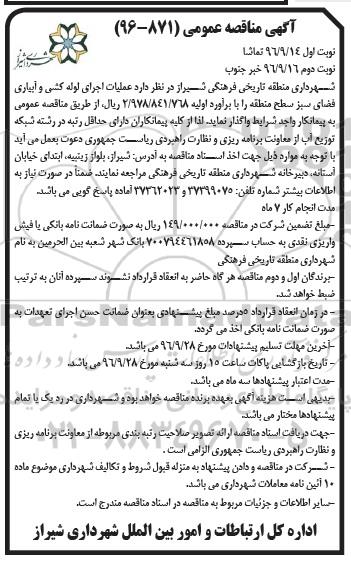 آگهی مناقصه عمومی (۸۷۱-۹۶)
نوبت اول ۹۶/۹/۱۴ تماشا
نوبت دوم ۹۶/۹/۱۶ خبر جنوب
شهرداری منطقه تاریخی فرهنگی شیراز در نظر دارد عملیات اجرای لوله کشی و آبیاری
فضای سبز سطح منطقه را با برآورد اولیه ۲/۹۷۸/۸۴۱/۷۶۸ ریال، از طریق مناقصه عمومی
به پیمانکار واجد شرایط واگذار نماید. لذا از کلیه پیمانکاران دارای حداقل رتبه در رشته شبکه
توزیع آب از معاونت برنامه ریزی و نظارت راهبردی ریاست جمهوری دعوت بعمل می آید
با توجه به موارد ذیل جهت اخذ اسناد مناقصه به آدرس: شیراز، بلوار زینبیه، ابتدای خیابان
آستانه، دبیرخانه شهرداری منطقه تاریخی فرهنگی مراجعه نمایند. ضمناً در صورت نیاز به
اطلاعات بیشتر شماره تلفن: ۳۷۳۹۹۰۷۵ و ۳۷۳۶۲۰۲۳ آماده پاسخ گویی می باشد.
مدت انجام کار ۷ ماه
-مبلغ تضمین شرکت در مناقصه ۱۴۹/۰۰۰/۰۰۰ ریال به صورت ضمانت نامه بانکی یا فیش
واریزی نقدی به حساب سپرده ۷۰۰۷۹۴۴۶۱۸۵۸ بانک شهر شعبه بین الحرمین به نام
شهرداری منطقه تاریخی فرهنگی
-برندگان اول و دوم مناقصه هر گاه حاضر به انعقاد قرارداد نشوند سپرده آنان به ترتیب
ضبط خواهد شد.
- در زمان انعقاد قرارداد ۵درصد مبلغ پیشنهادی بعنوان ضمانت حسن اجرای تعهدات به
صورت ضمانت نامه بانکی اخذ می گردد.
-آخرین مهلت تسلیم پیشنهادات مورخ ۹۶/۹/۲۸ می باشد.
- تاریخ بازگشایی پاکات ساعت ۱۵ روز سه شنبه مورخ ۹۶/۹/۲۸ می باشد.
-مدت اعتبار پیشنهادها سه ماه می باشد.
-بدیهی است هزینه آگهی بعهده برنده مناقصه خواهد بود و شهرداری در رد یک یا تمام
پیشنهادها مختار می باشد.
-جهت دریافت اسناد مناقصه ارائه تصویر صلاحیت رتبه بندی مربوطه از معاونت برنامه ریزی
و نظارت راهبردی ریاست جمهوری الزامی است.
- شرکت در مناقصه و دادن پیشنهاد به منزله قبول شروط و تکالیف شهرداری موضوع ماده
۱۰ آئین نامه معاملات شهرداری می باشد.
-سایر اطلاعات و جزئیات مربوط به مناقصه در اسناد مناقصه مندرج است.
اداره کل ارتباطات و امور بین الملل شهرداری شیراز